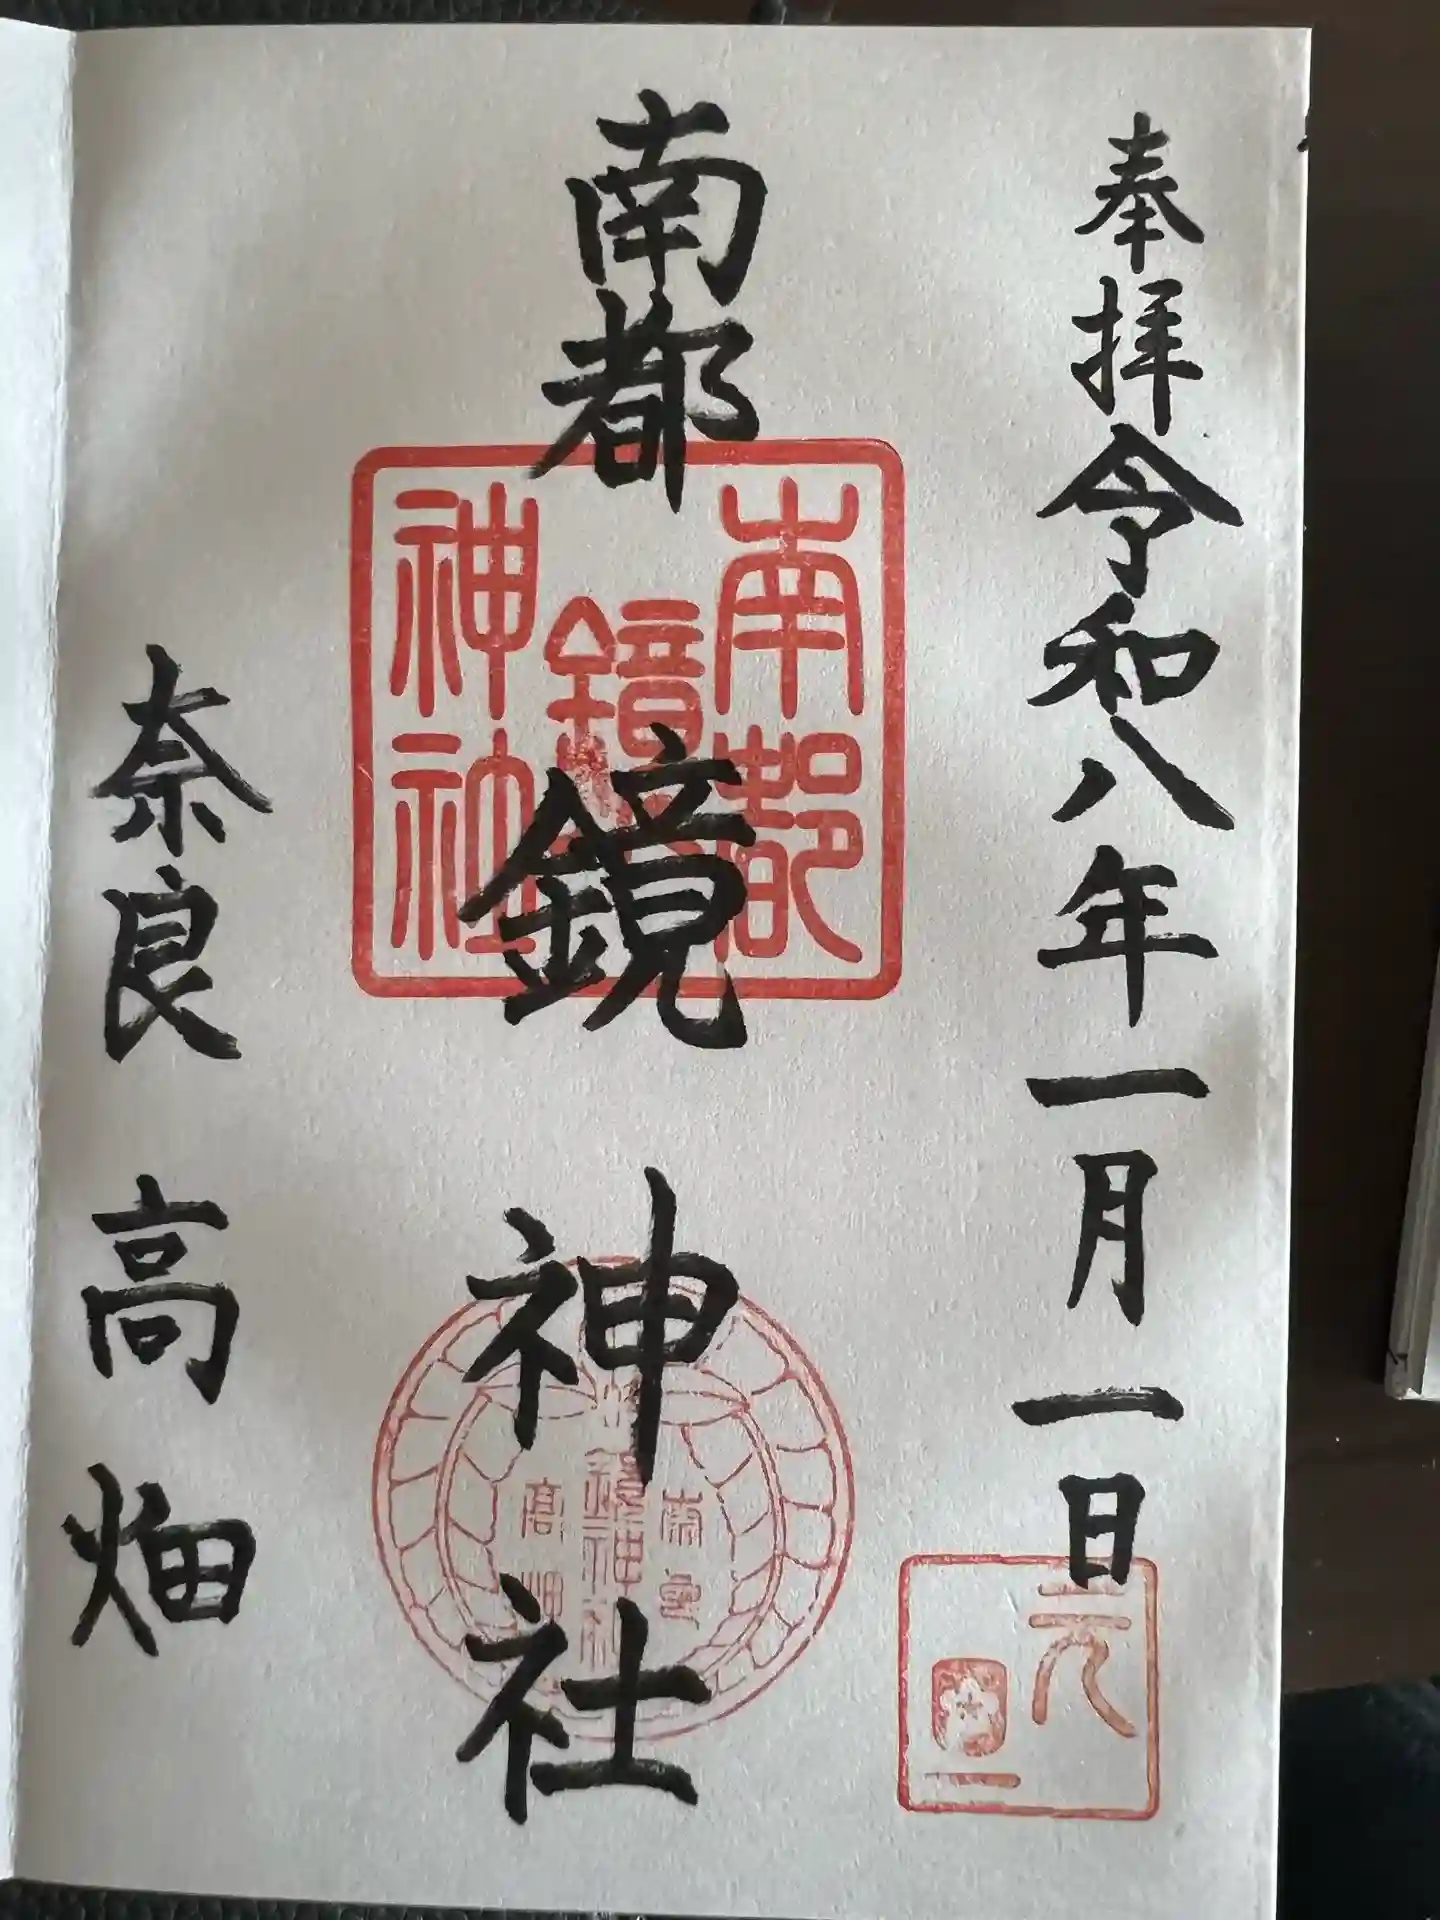 奉拝 令和八年一月一日
南都 鏡 神社
奈良 高畑
南都
鏡
神社
南都
鏡神社
高畑
元
一